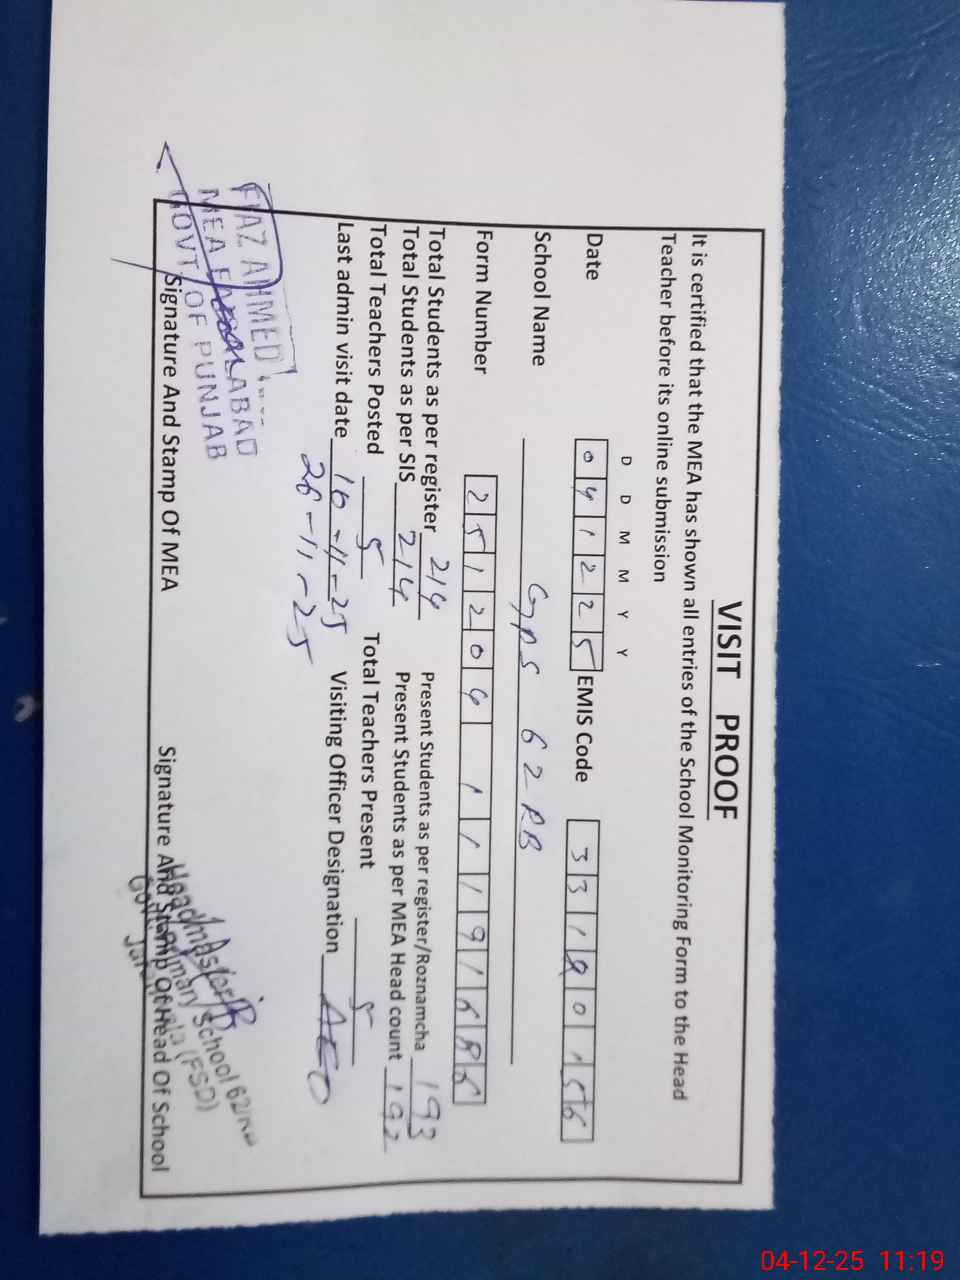 VISIT PROOF
It is certified that the MEA has shown all entries of the School Monitoring Form to the Head
Teacher before its online submission
D D M M Y Y
Date 0 4 1 2 2 5 EMIS Code 3 3 1 8 0 1 5 6
School Name GPS 62 RB
Form Number 2 5 1 2 0 4 1 1 1 9 1 6 8 6
Total Students as per register 214 Present Students as per register/Roznamcha 193
Total Students as per SIS 214 Present Students as per MEA Head count 192
Total Teachers Posted 5 Total Teachers Present 5
Last admin visit date 10-11-25 Visiting Officer Designation AEO
26-11-25
FIAZ AHMED
MEA FAISALABAD
GOVT OF PUNJAB
Signature And Stamp Of MEA
Headmaster
Primary School 62/RB
(FSD)
Signature And Stamp Of Head Of School
04-12-25 11:19